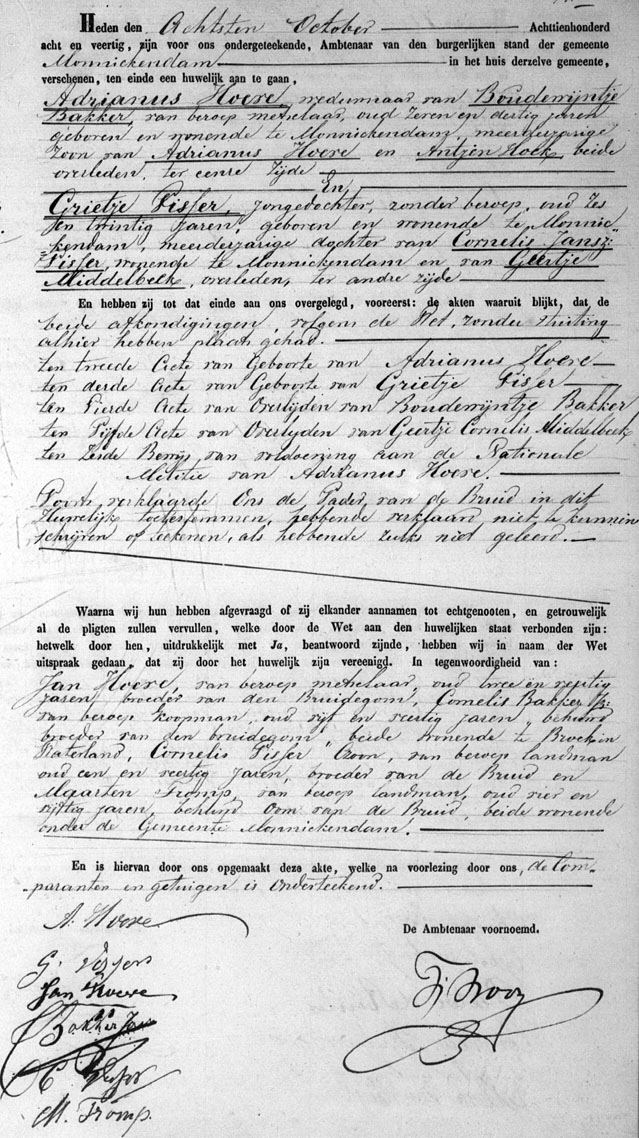 Heden den Achtsten October Achttienhonderd
acht en veertig, zijn voor ons ondergeteekende, Ambtenaar van den burgerlijken stand der gemeente
Monnickendam in het huis derzelve gemeente,
verschenen, ten einde een huwelijk aan te gaan,
Adrianus Hoere, weduwnaar van Boudewijntje
Bakker, van beroep metselaar, oud zeven en dertig jaren
geboren en wonende te Monnickendam, meerderjarige
zoon van Adrianus Hoere en Antjen Hoek, beide
overleden, ter eenre zijde
En,
Grietje Visser, jongedochter, zonder beroep, oud zes
en twintig jaren, geboren en wonende te Monnic-
kendam, meerderjarige dochter van Cornelis Jansz:
Visser, wonende te Monnickendam en van Geertje
Middelbeek, overleden, ter andre zijde
En hebben zij tot dat einde aan ons overgelegd, vooreerst: de akten waaruit blijkt, dat de
beide afkondigingen, volgens de Wet, zonder stuiting
alhier hebben plaats gehad.
ten tweede Acte van Geboorte van Adrianus Hoere
ten derde Acte van Geboorte van Grietje Visser
ten Vierde Acte van Overlijden van Boudewijntje Bakker
ten Vijfde Acte van Overlyden van Geertje Cornelis Middelbeek
ten Zesde Bewijs van voldoening aan de Nationale
Militie van Adrianus Hoere.
Voorts verklaarde Ons de Vader van de Bruid in dit
Huwelijk toetestemmen, hebbende verklaard niet te kunnen
schrijven of teekenen, als hebbende zulks niet geleerd.
Waarna wij hun hebben afgevraagd of zij elkander aannamen tot echtgenooten, en getrouwelijk
al de pligten zullen vervullen, welke door de Wet aan den huwelijken staat verbonden zijn:
hetwelk door hen, uitdrukkelijk met Ja, beantwoord zijnde, hebben wij in naam der Wet
uitspraak gedaan, dat zij door het huwelijk zijn vereenigd. In tegenwoordigheid van:
Jan Hoere, van beroep metselaar, oud twee en veertig
jaren broeder van den Bruidegom, Cornelis Bakker
van beroep koopman, oud vijf en veertig jaren, behuwd
broeder van den bruidegom beide wonende te Broek in
Waterland, Cornelis Visser Czoon, van beroep landman
oud een en veertig jaren, broeder van de Bruid en
Maarten Tromp, van beroep landman, oud vier en
vijftig jaren, behuwd Oom van de Bruid, beide wonende
onder de Gemeente Monnickendam.
En is hiervan door ons opgemaakt deze akte, welke na voorlezing door ons, de Com-
paranten en getuigen is Onderteekend.
A. Hoere
De Ambtenaar voornoemd.
G. Vissers
Jan Hoere
C Bakker
C. Visser
M. Tromp.